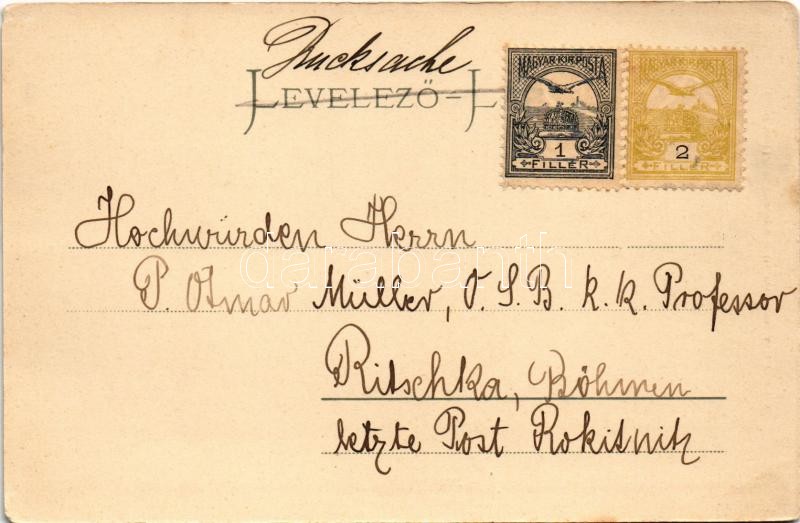 Drucksache
LEVELEZŐ-L
MAGYAR·KIR·POSTA
1
FILLÉR
MAGYAR·KIR·POSTA
2
FILLÉR
Hochwürden Herrn
P. Otmar Müller, O. S. B. k. k. Professor
Ritschka, Böhmen
letzte Post Rokitnitz
darabanth